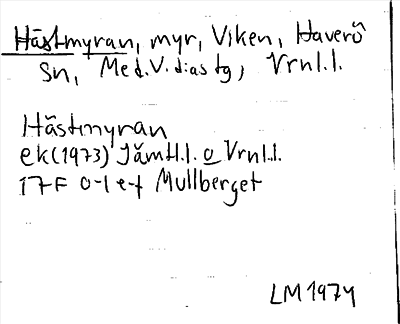 Hästmyran, myr, Viken, Haverö
Sn, Med.V.diastg, Vrnl.l.
Hästmyran
ek(1973) Jämtl.l. o Vrnl.l.
17F 0-1 e-f Mullberget
LM 1974